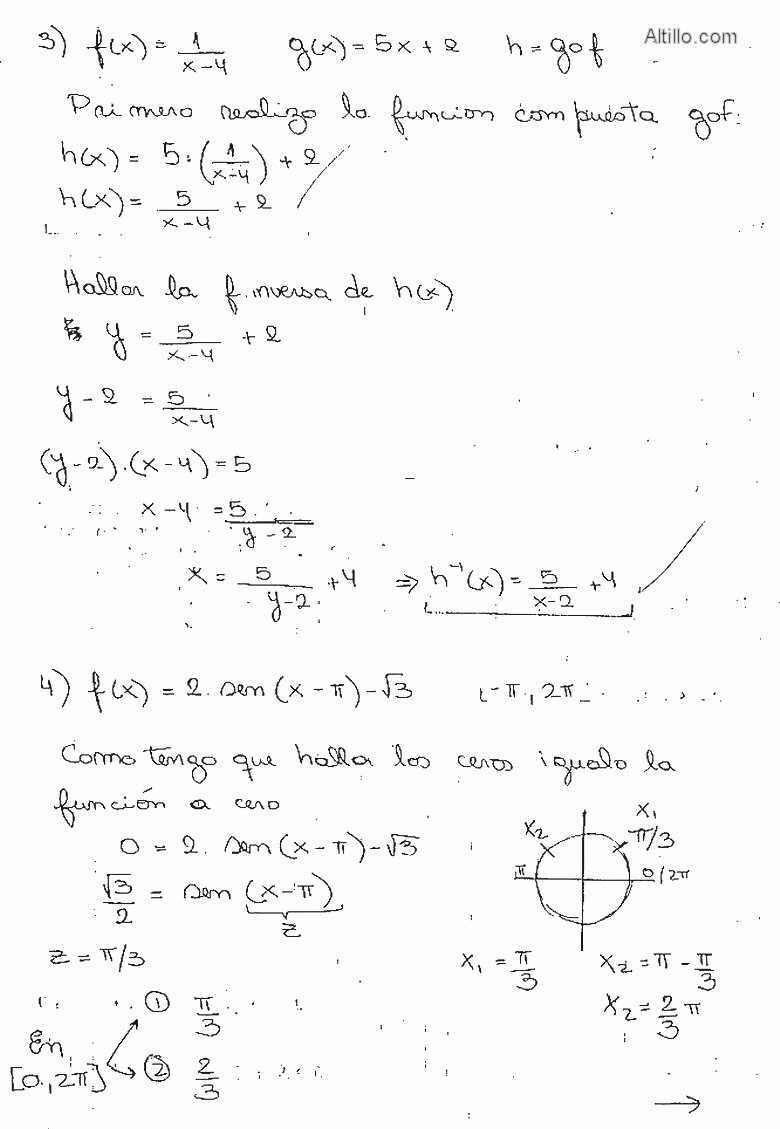 Altillo.com
3) f(x) = 1/(x-4)   g(x) = 5x+2   h = gof
Primero realizo la funcion compuesta gof:
h(x) = 5.(1/(x-4)) + 2
h(x) = 5/(x-4) + 2
Hallar la f. inversa de h(x)
y = 5/(x-4) + 2
y - 2 = 5/(x-4)
(y-2).(x-4) = 5
x-4 = 5/(y-2)
x = 5/(y-2) + 4 ⇒ h⁻¹(x) = 5/(x-2) + 4
4) f(x) = 2. sen(x-π) - √3   [-π, 2π]
Como tengo que hallar los ceros igualo la
función a cero
0 = 2. sen(x-π) - √3
√3/2 = sen (x-π)
z
z = π/3
x₁
x₂ π/3
π 0/2π
x₁ = π/3   x₂ = π - π/3
x₂ = 2/3 π
① π/3
En
[0, 2π]
② 2/3
→